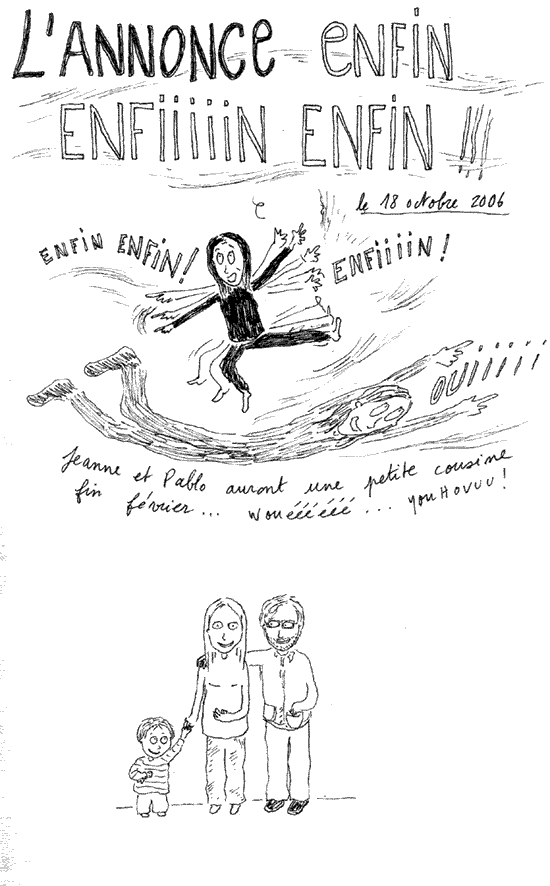 L'ANNONCE ENFIN
ENFiiiiiN ENFiN !!!
le 18 octobre 2006
ENFIN ENFIN!
ENFiiiiiN!
OUiiiiii
Jeanne et Pablo auront une petite cousine
fin février... wouéééééé... youHOUUU!